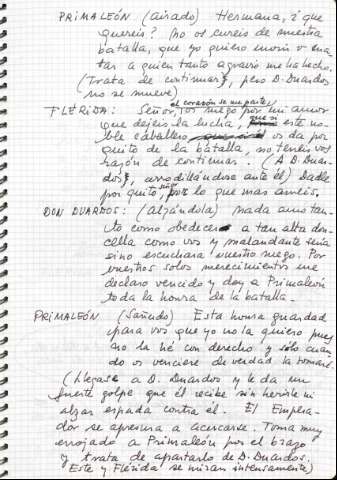 PRIMALEÓN (airado) Hermana, ¿que
quereis? ¡no os cureis de nuestra
batalla, que yo quiero morir o ma-
tar a quien tanto agravio me ha hecho.
(Trata de continuar, pero D. Duardos
no se mueve)
el corazón se me parte,
FLÉRIDA: Señor, os ruego por mi amor
que dejeis la lucha, que si este no-
ble caballero os da por
quito de la batalla, no teneis vos
razón de continuar. (A D. Duar-
dos, arrodillándose ante él) Dadle
por quito, señor, por lo que mas ameis.
DON DUARDOS: (alzándola) nada amo tan-
to como obedecer a tan alta don-
cella como vos y malandante seria
si no escuchara vuestro ruego. Por
vuestros solos merecimientos me
declaro vencido y doy a Primaleón
toda la honra de la batalla.
PRIMALEÓN (Sañudo) Esta honra guardad
para vos que yo no la quiero pues
no la he con derecho y solo cuan-
do os venciere de verdad la tomaré.
(Llegase a D. Duardos y le da un
fuerte golpe que él recibe sin herirle ni
alzar espada contra él. El Empera-
dor se apresura a acercarse. Toma muy
enojado a Primaleón por el brazo
y trata de apartarlo de D. Duardos.
Este y Flérida se miran intensamente)